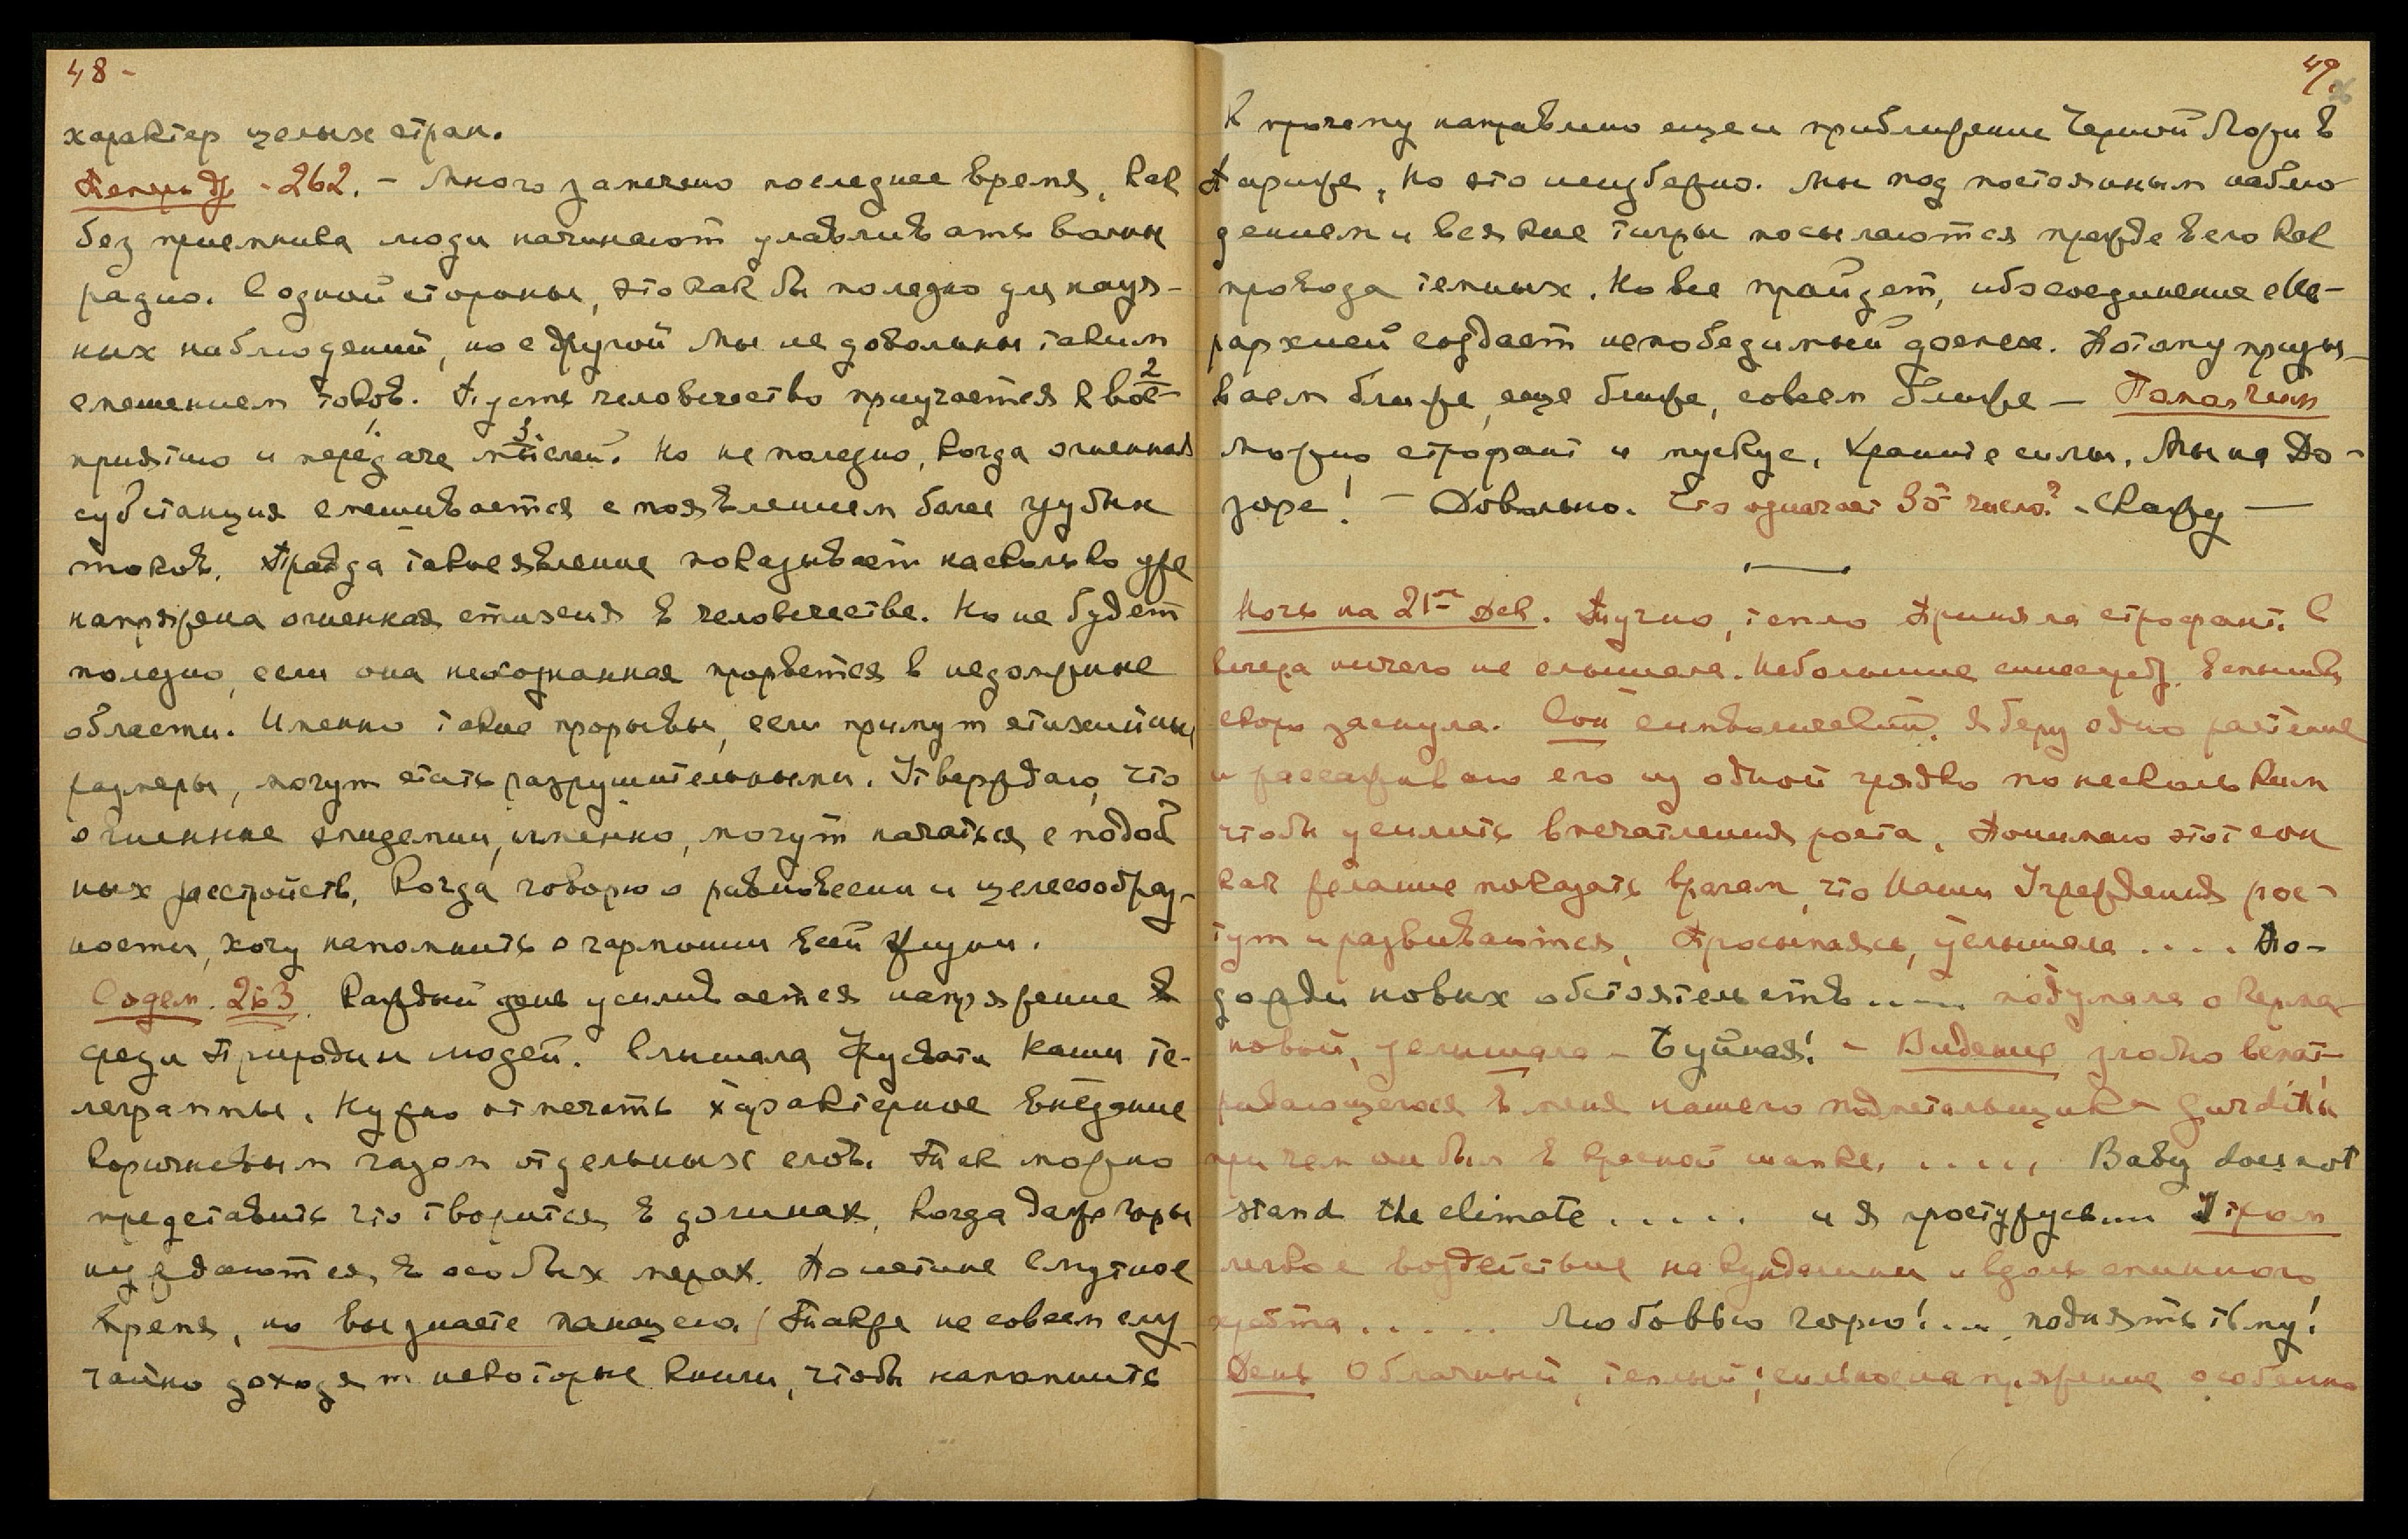 48 -
характер целых стран.
- 262. - Много замечено последнее время, как
без приемника люди начинают улавливать волны
радио. С одной стороны, это как бы полезно для науч-
ных наблюдений, но с другой Мы не довольны таким
смешением токов. Пусть человечество приучается к вос-
2
приятию и передаче мыслей. Но не полезно, когда огненная
1. 3.
субстанция смешивается с появлением более грубых
токов. Правда такое явление показывает насколько уже
напряжена огненная стихия в человечестве. Но не будет
полезно, если она неосознанная прорвется в недолжные
области. Именно такие прорывы, если примут стихийные
размеры, могут стать разрушительными. Утверждаю, что
огненные эпидемии, именно, могут начаться с подоб
ных расстройств. Когда говорю о равновесии и целесообраз-
ности, хочу напомнить о гармонии всей жизни.
263. Каждый день усиливается напряжение
среди Природы и людей. Слышала Урусвати Наши те-
леграммы. Нужно отмечать характерное въедание
коричневым газом отдельных слов. Так можно
представить что творится в долинах, когда даже горы
нуждаются в особых мерах. Поистине смутное
время, но вы знаете панацею. Также не совсем слу-
чайно доходят некоторые книги, чтобы напомнить
49.
К прочему направлено еще и приближение Черной Ложи в
Париже, но это неизбежно. Мы под постоянным наблю-
дением и всякие тигры посылаются прежде всего как
провода темных. Но все пройдет, ибо соединение с Ие-
рархией создает непобедимый доспех. Потому призы-
ваем ближе, еще ближе, совсем ближе -
можно строфант и мускус. Храните силы. Мы на До-
зоре! - Довольно. Что означает 35 число? - Скажу —
Ночь на 21ое Дек. Тучно, тепло Приняла строфант. С
вечера ничего не слышала. Небольшие вспышки
скоро заснула. Сон символический. Я беру одно растение
и рассаживаю его из одной грядки по нескольким
чтобы усилить впечатления роста. Понимаю этот сон
как желание показать врагам, что Наши Учреждения рос-
тут и развиваются. Просыпаясь, услышала .... По-
дожди новых обстоятельств..... подумала о
новой, услышала - Буйная! - Видение злобно
в меня нашего
при чем он был в красной шапке. ..... Baby does not
stand the climate ..... и я простужусь... Утром
легкое воздействие на Кундалини и вдоль спинного
хребта ..... Любовью горю!... поднять тьму!
День Облачный, теплый; сильное напряжение особенно